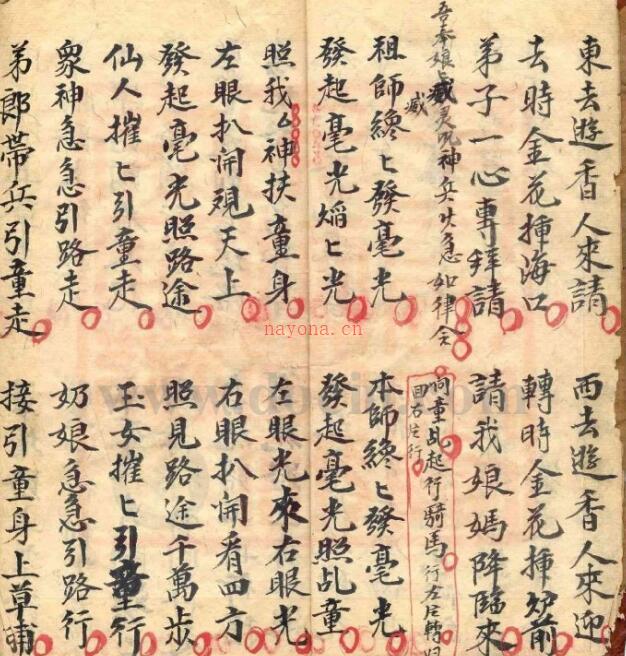 東去遊香人來請
西去遊香人來迎
去時金花插海口
轉時金花插前
弟子一心專拜請
請我娘媽降臨來
吾奉娘藏灵咒神兵火急如律令
藏
向童乩起行騎馬行左片轉
回右片行
祖師纔匕發毫光
本師纔匕發毫光
發起毫光焰匕光
發起毫光照乩童
照我厶神扶童身
左眼光來右眼光
左眼扒開覌天上
右眼扒開看四方
發起毫光照路途
照見路途千萬步
仙人摧匕引童走
玉女摧匕引童行
衆神急急引路走
奶娘急急引路行
弟郎帶兵引童走
接引童身上草埔
nayona.cn